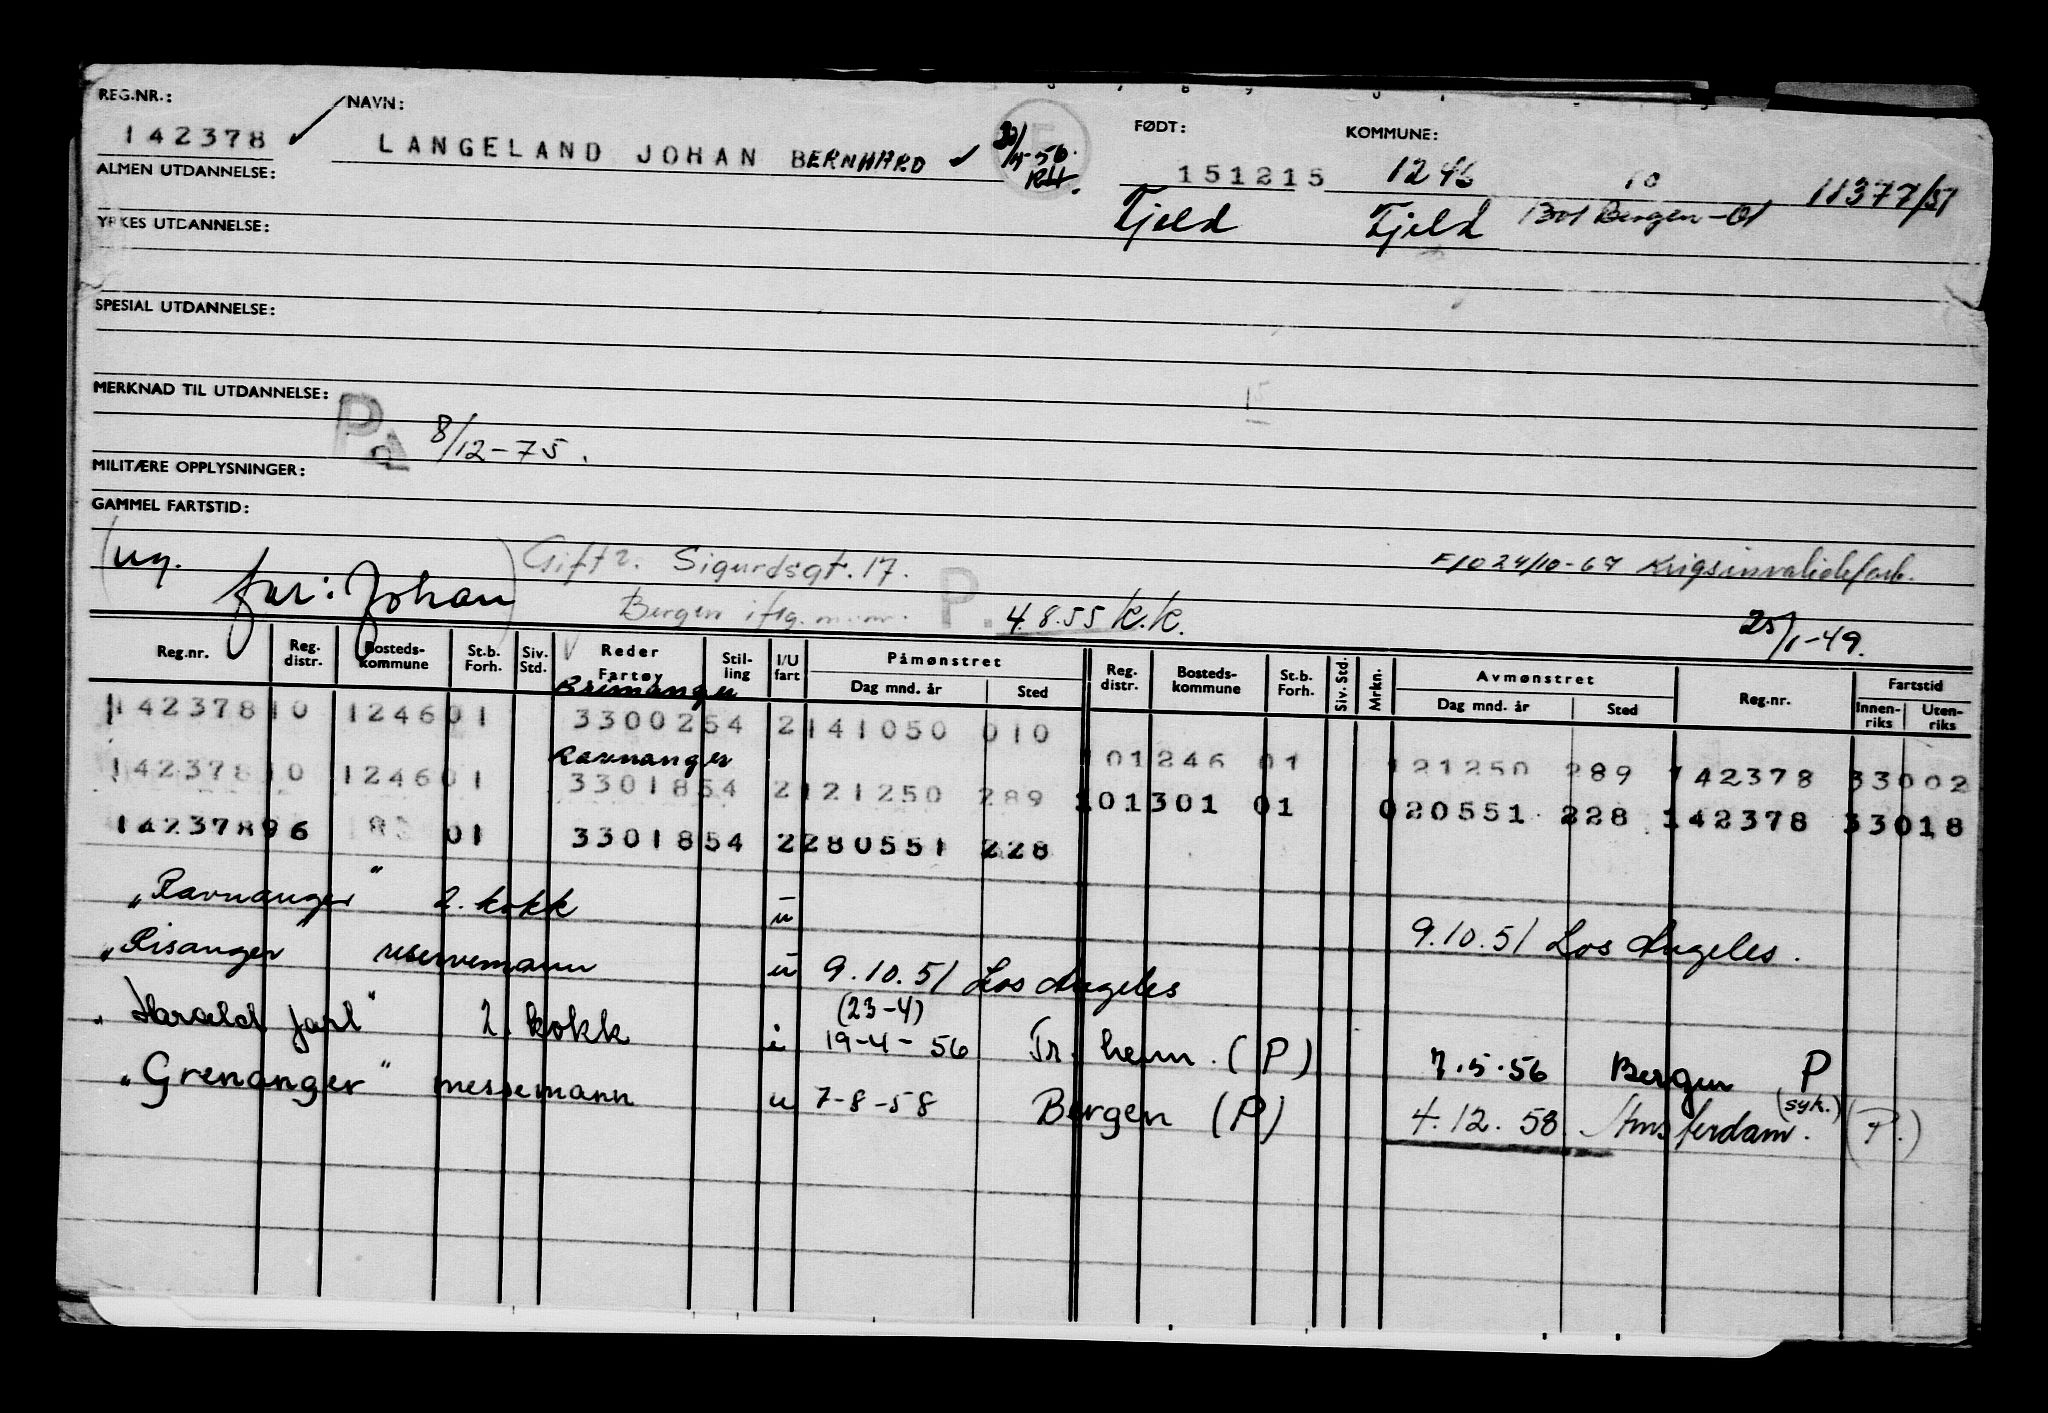 REG.NR.: NAVN: FØDT: KOMMUNE:
142378 LANGELAND JOHAN BERNHARD 151215 1246 10 11377/51
-56. RH.
Fjeld Fjeld Bergen-01
ALMEN UTDANNELSE:
YRKES UTDANNELSE:
SPESIAL UTDANNELSE:
MERKNAD TIL UTDANNELSE:
PA 8/12-75.
MILITÆRE OPPLYSNINGER:
GAMMEL FARTSTID:
(ug. far: Johan) Gift 2. Sigurdsgt. 17. F/O 24/10-67 Krigsinvalideforb.
Bergen iflg. m.m. P. 4.8.55 K.K. 25/1-49.
Reg.nr. Reg. distr. Bosteds-kommune St.b. Forh. Siv. Std. Reder Fartøy Stil-ling I/U fart Påmønstret Dag mnd. år Sted Reg. distr. Bosteds-kommune St.b. Forh. Siv. Std. Mrkn. Avmønstret Dag mnd. år Sted Reg.nr. Fartstid Innen-riks Uten-riks
Brimanger
142378 10 1246 01 33002 54 2 141050 010 101246 01 121250 289 142378 33002
Ravnanger
142378 10 1246 01 33018 54 2 121250 289 101301 01 020551 228 142378 33018
142378 96 01 33018 54 2 280551 228
"Ravnanger" 2. kokk u 9.10.51 Los Angeles.
"Risanger reservemann u 9.10.51 Los Angeles
(23-4)
"Harald Jarl" 2. kokk i 19-4-56 Tr.heim. (P) 7.5.56 Bergen P
"Grenanger" messemann u 7-8-58 Bergen (P) 4.12.58 Amsterdam. (syk.) (P.)